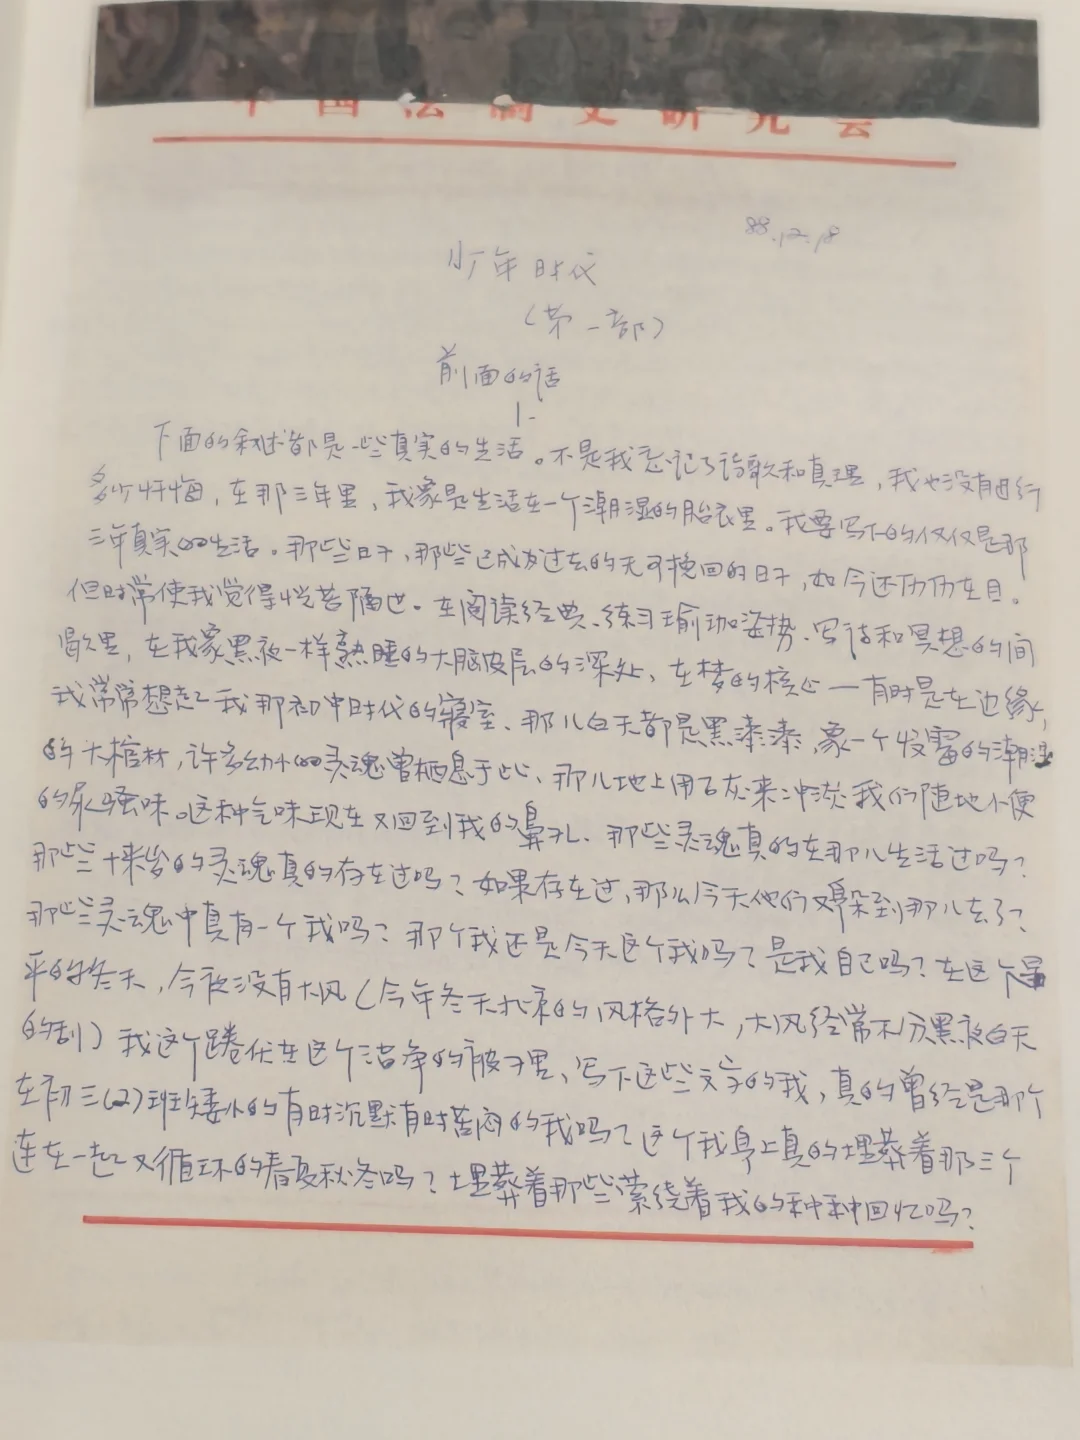 中国法制史研究会
88.12.18
少年时代
(第一部)
前面的话
1.
下面的叙述都是一些真实的生活。不是我忘记了诗歌和真理,我也没有进行
多少忏悔,在那三年里,我象是生活在一个潮湿的胎衣里。我要写下的仅仅是那
三年真实的生活。那些日子,那些已成为过去的无可挽回的日子,如今还历历在目。
但时常使我觉得恍若隔世。在阅读经典、练习瑜珈姿势、写诗和冥想的间
歇里,在我象黑夜一样熟睡的大脑皮层的深处、在梦的核心—有时是在边缘,
我常常想起我那初中时代的寝室、那儿白天都是黑漆漆,象一个发霉的潮湿
的大棺材,许多幼小的灵魂曾栖息于此、那儿地上用石灰来冲淡我们随地小便
的尿骚味。这种气味现在又回到我的鼻孔、那些灵魂真的在那儿生活过吗?
那些十来岁的灵魂真的存在过吗?如果存在过,那么今天他们又躲到那儿去了?
那些灵魂中真有一个我吗?那个我还是今天这个我吗?是我自己吗?在这个昌
平的冬天,今夜没有大风(今年冬天北京的风格外大,大风经常不分黑夜白天
的刮)我这个蜷伏在这个洁净的被子里、写下这些文字的我,真的曾经是那个
在初三(2)班矮小的有时沉默有时苦闷的我吗?这个我身上真的埋葬着那三个
连在一起又循环的春夏秋冬吗?埋葬着那些萦绕着我的种种回忆吗?